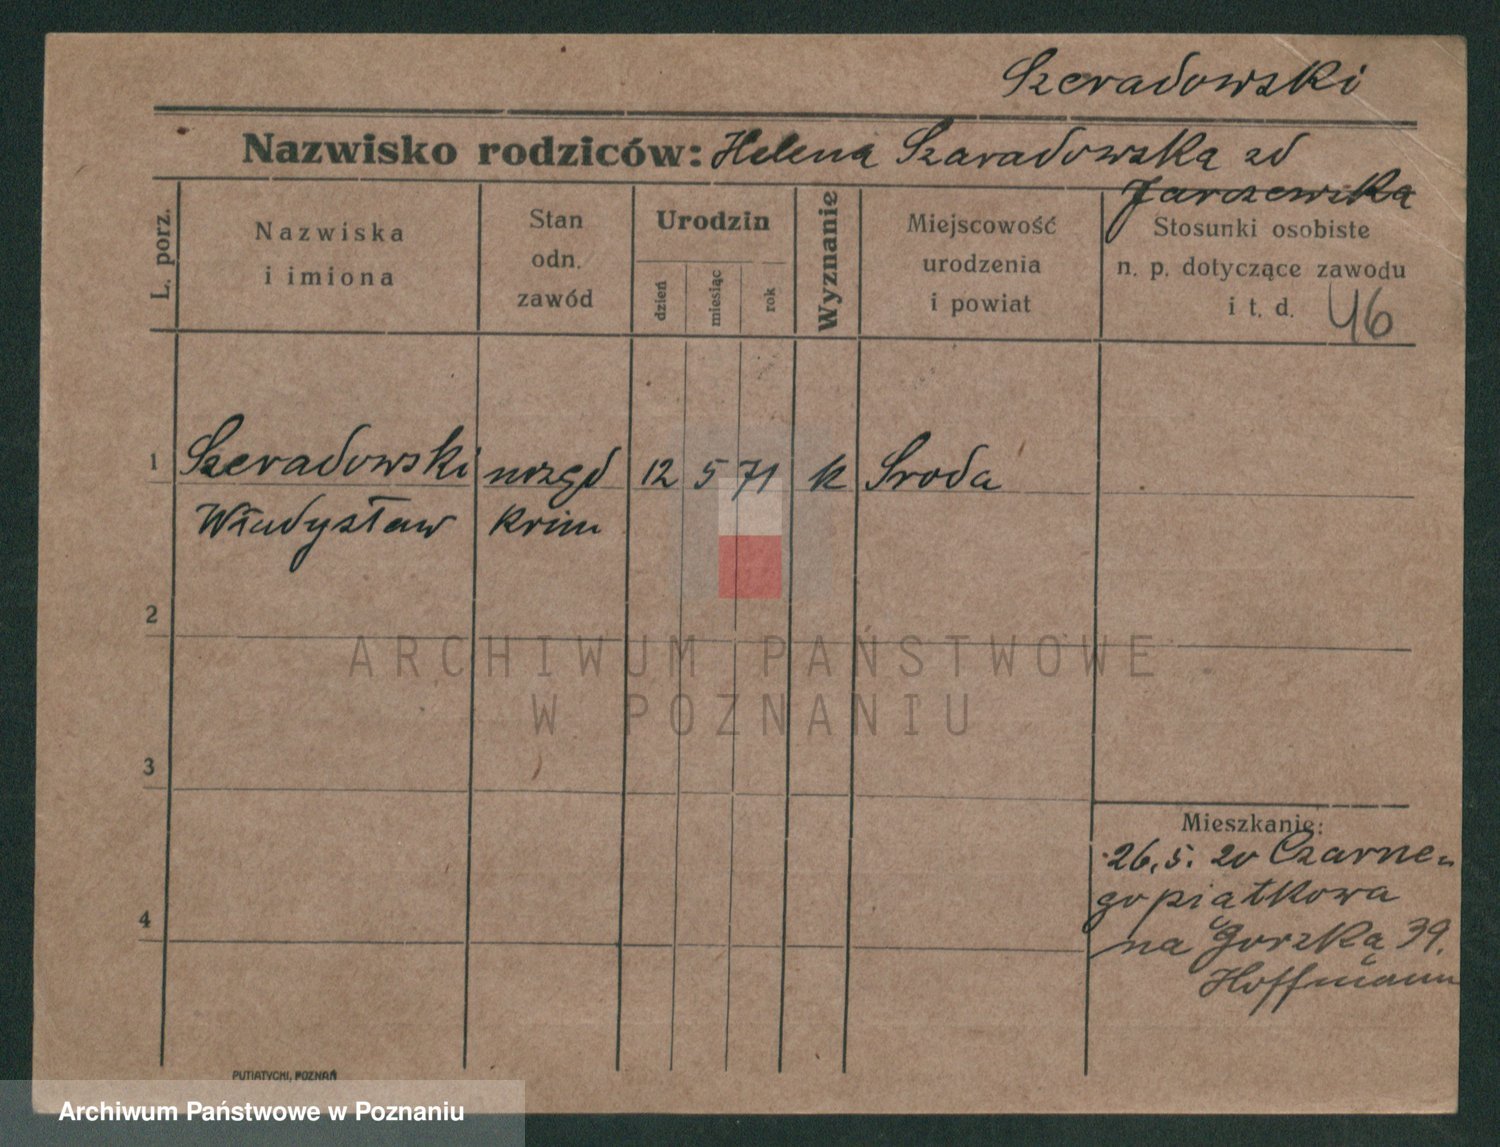 Szeradowski
Nazwisko rodziców: Helena Szaradowska zd
Jarczewska
L. porz.
Nazwiska
i imiona
Stan
odn.
zawód
Urodzin
dzień
miesiąc
rok
Wyznanie
Miejscowość
urodzenia
i powiat
Stosunki osobiste
n. p. dotyczące zawodu
i t. d. 46
1 Szeradowski 12 5 71 k Sroda
Władysław krim
2
3
4
Mieszkanie:
26.5.20 Czarne-
go piątkowa
na Gorzką 39.
Hoffmann
PUTIATYCKI, POZNAŃ
ARCHIWUM PAŃSTWOWE
W POZNANIU
Archiwum Państwowe w Poznaniu